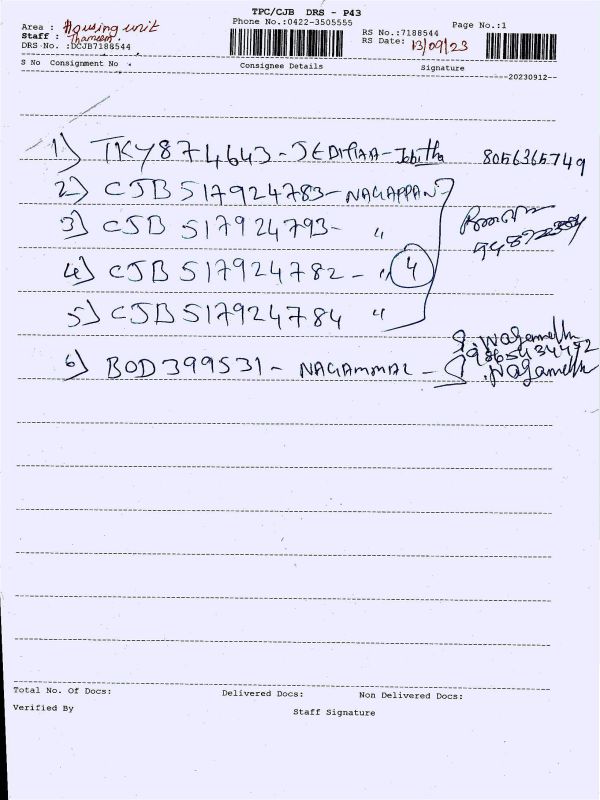 TPC/CJB DRS - P43
Area : Housing unit
Phone No.:0422-3505555
Page No.:1
Staff : Thameem.
RS No.:7188544
DRS No. :DCJB7188544
RS Date: 13/09/23
S No Consignment No
Consignee Details
Signature
20230912
1) TKY874643 - JEDITIAA - Jebitha 8056365749
2) CJB 517924783 - NAGAPPAN
3) CJB 517924793 - "
4) CJB 517924782 - " 4
5) CJB 517924784 "
6) BOD399531 - NAGAMMAL -
Total No. Of Docs:
Delivered Docs:
Non Delivered Docs:
Verified By
Staff Signature